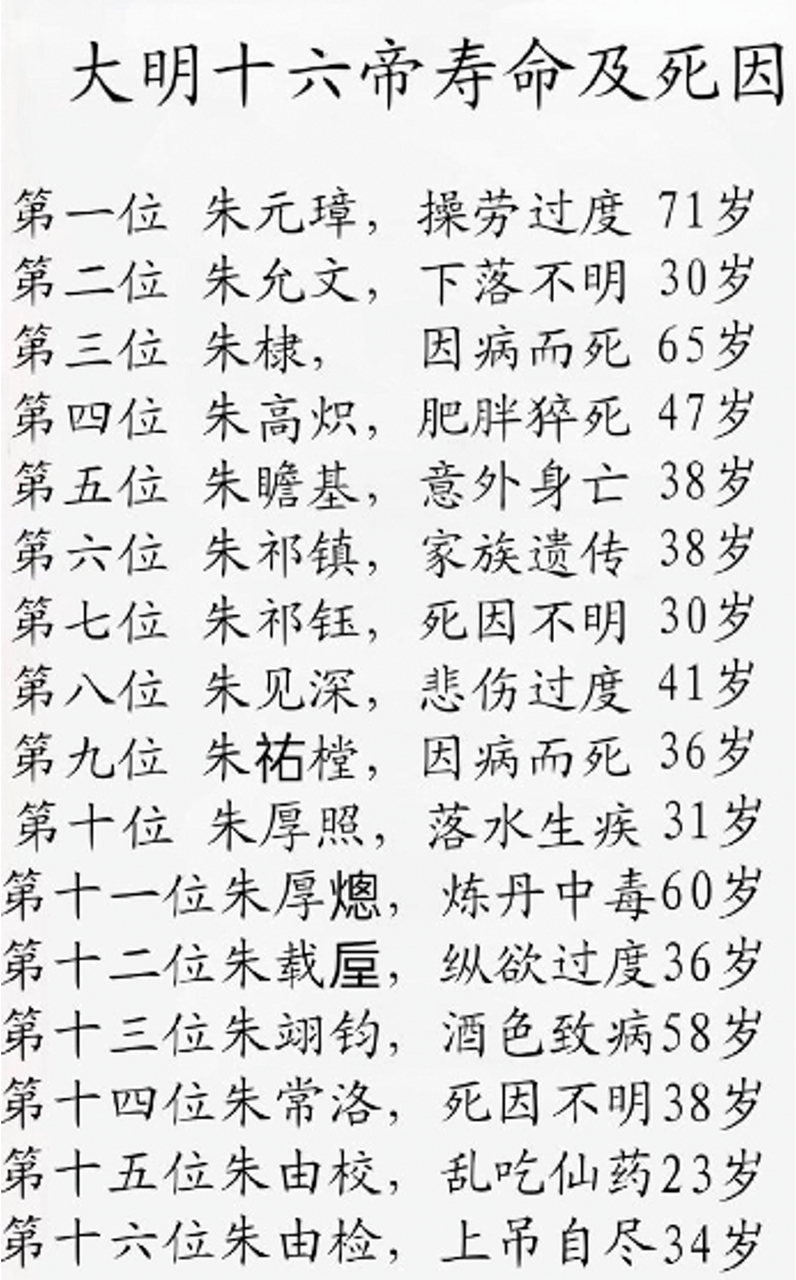 大明十六帝寿命及死因
第一位 朱元璋，操劳过度 71岁
第二位 朱允文，下落不明 30岁
第三位 朱棣， 因病而死 65岁
第四位 朱高炽，肥胖猝死 47岁
第五位 朱瞻基，意外身亡 38岁
第六位 朱祁镇，家族遗传 38岁
第七位 朱祁钰，死因不明 30岁
第八位 朱见深，悲伤过度 41岁
第九位 朱祐樘，因病而死 36岁
第十位 朱厚照，落水生疾 31岁
第十一位朱厚熜，炼丹中毒60岁
第十二位朱载垕，纵欲过度36岁
第十三位朱翊钧，酒色致病58岁
第十四位朱常洛，死因不明38岁
第十五位朱由校，乱吃仙药23岁
第十六位朱由检，上吊自尽34岁